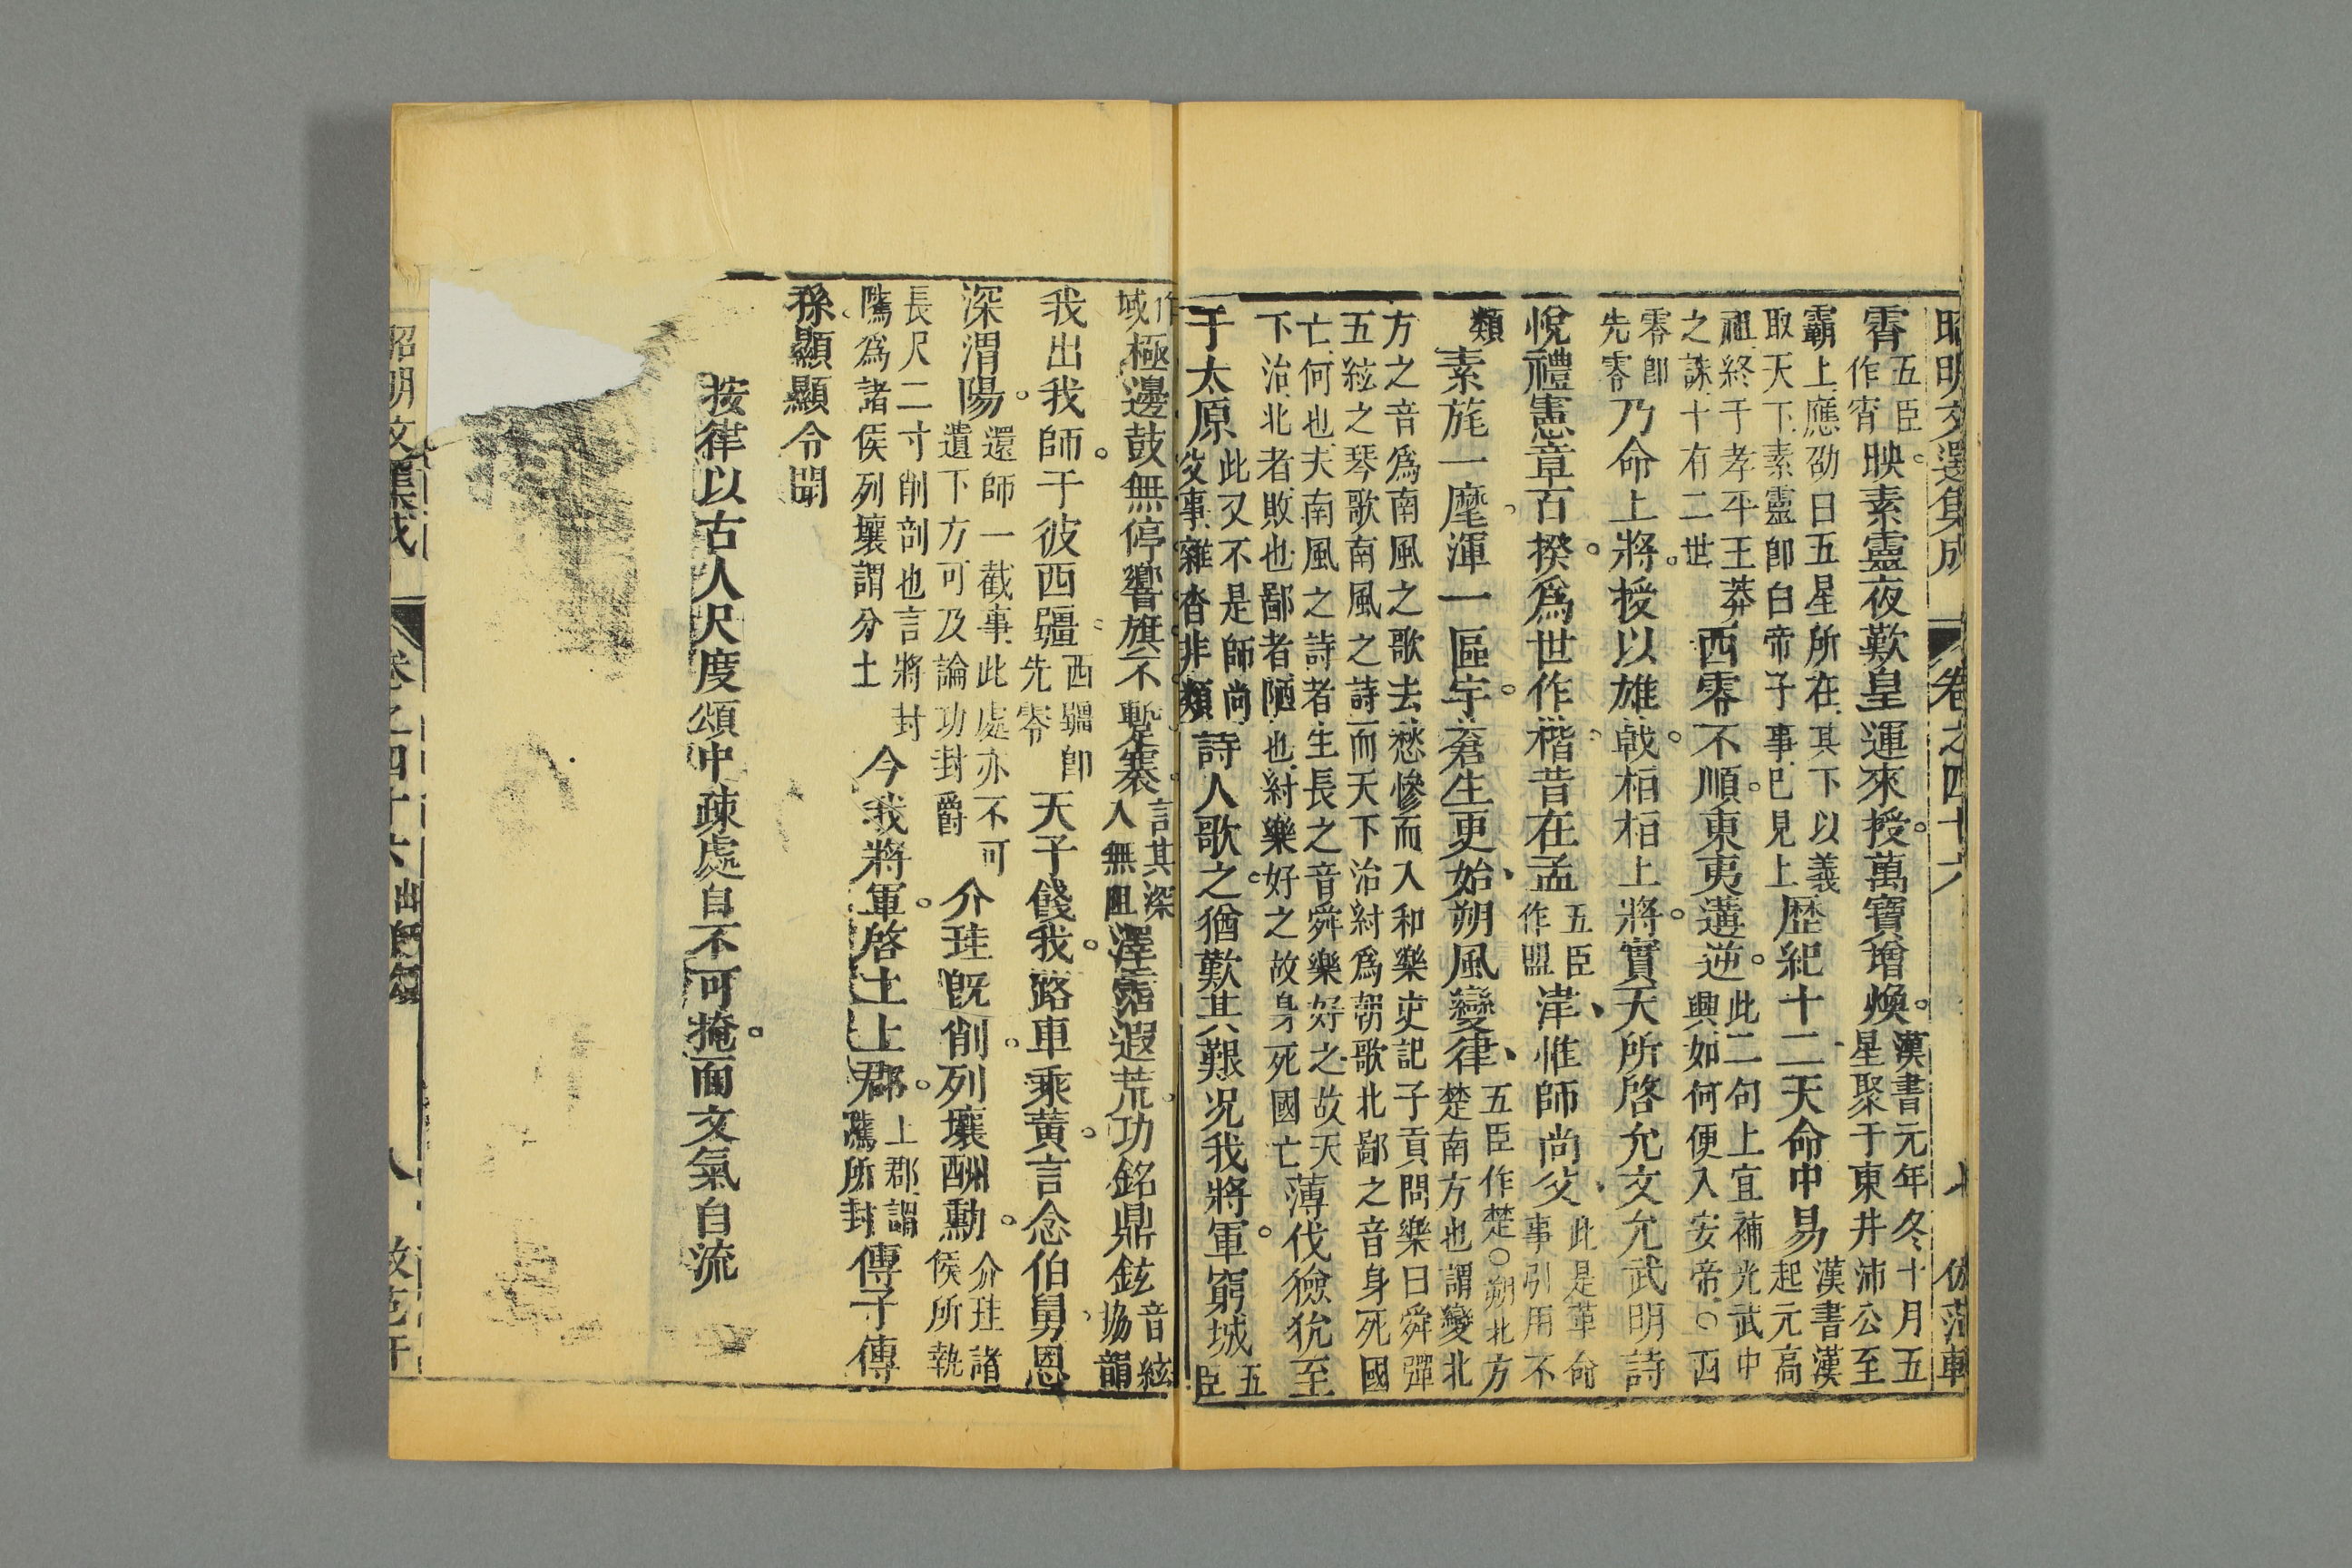 昭明文選集成 卷之四十六 七 倣范軒
霄五臣作宵映素靈夜歎皇運來授萬寶增煥漢書元年冬十月五星聚于東井沛公至
霸上應劭曰五星所在其下以義取天下素靈卽白帝子事已見上歷紀十二天命中易漢書漢起元高
祖終于孝平王莽之誅十有二世西零不順東夷遘逆此二句上宜補光武中興如何便入安帝〇西
零卽先零乃命上將授以雄戟桓桓上將實天所啓允文允武明詩
悅禮憲章百揆爲世作楷昔在孟五臣作盟津惟師尚父此是革命事引用不
類素旄一麾渾一區宇蒼生更始朔風變律五臣作楚〇朔北方楚南方也謂變北
方之音爲南風之歌去愁慘而入和樂史記子貢問樂曰舜彈五絃之琴歌南風之詩而天下治紂爲朝歌北鄙之音身死國
亡何也夫南風之詩者生長之音舜樂好之故天下治北者敗也鄙者陋也紂樂好之故身死國亡薄伐獫狁至
于太原此又不是師尚父事雜沓非類詩人歌之猶歎其艱況我將軍窮城五臣
作域極邊鼓無停響旗不蹔褰言其深入無阻澤霑遐荒功銘鼎鉉音絃協韻
我出我師于彼西疆西疆卽先零天子餞我路車乘黄言念伯舅恩
深渭陽還師一截事此處亦不可遺下方可及論功封爵介珪旣削列壤酬勳介珪諸侯所執
長尺二寸削剖也言將封隲爲諸侯列壤謂分土今我將軍啓土上郡上郡謂隲所封傳子傳
孫顯顯令聞
按律以古人尺度頌中疎處自不可掩而文氣自流
昭明文選集成 卷之四十六 出師頌 八 倣范軒